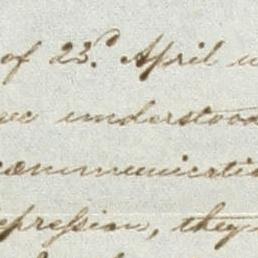 of 23.d April
understood
communicatio
epression, they